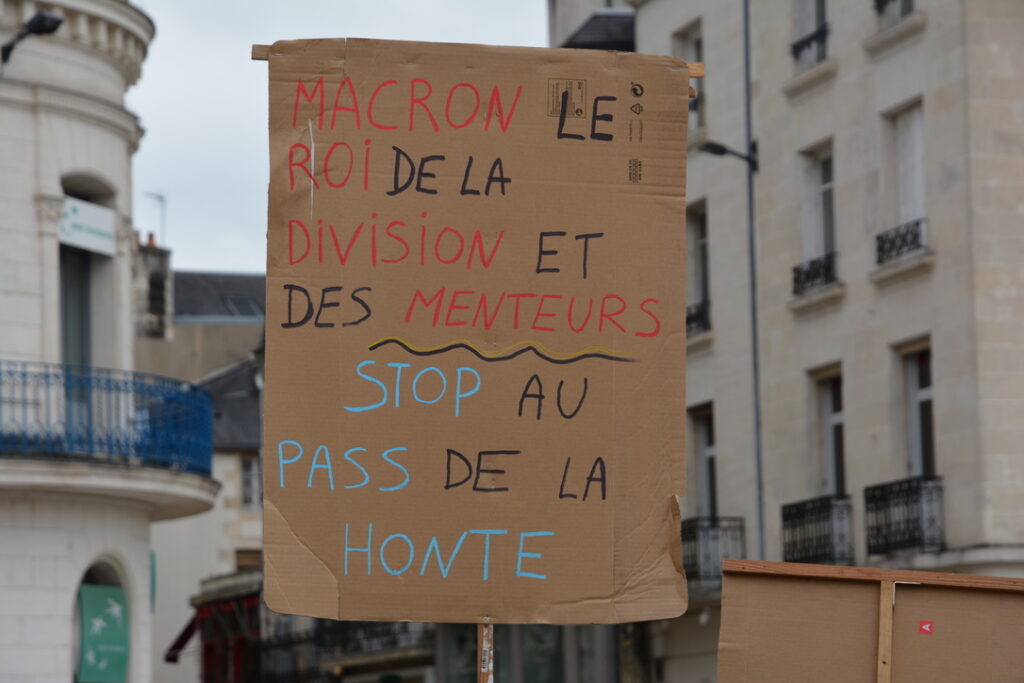 MACRON LE
ROI DE LA
DIVISION ET
DES MENTEURS
STOP AU
PASS DE LA
HONTE
A